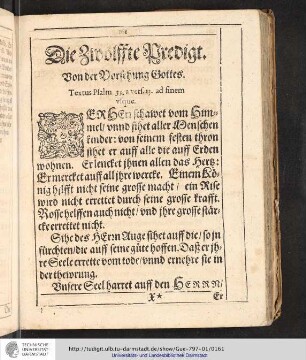 Die Zwölffte Predigt.
Von der Vorsehung Gottes.
Textus Psalm. 33. à vers. 13. ad finem
vsque.
DER HErr schawet vom Him-
mel/ vnnd sihet aller Menschen
kinder: von seinem festen thron
sihet er auff alle die auff Erden
wohnen. Er lencket jhnen allen das Hertz:
Er mercket auff all jhr wercke. Einem Kö-
nig hilfft nicht seine grosse macht/ ein Rise
wird nicht errettet durch seine grosse krafft.
Rosse helffen auch nicht/ vnd jhre grosse stär-
cke errettet nicht.
Sihe des HErrn Auge sihet auff die/ so jn
fürchten/ die auff seine güte hoffen. Daß er jh-
re Seele errette vom tode/ vnnd ernehre sie in
der thewrung.
Vnsere Seel harret auff den HERRN/
X*
Er
TECHNISCHE
UNIVERSITÄT
DARMSTADT
http://tudigit.ulb.tu-darmstadt.de/show/Gue-797-01/0161
Universitäts- und Landesbibliothek Darmstadt